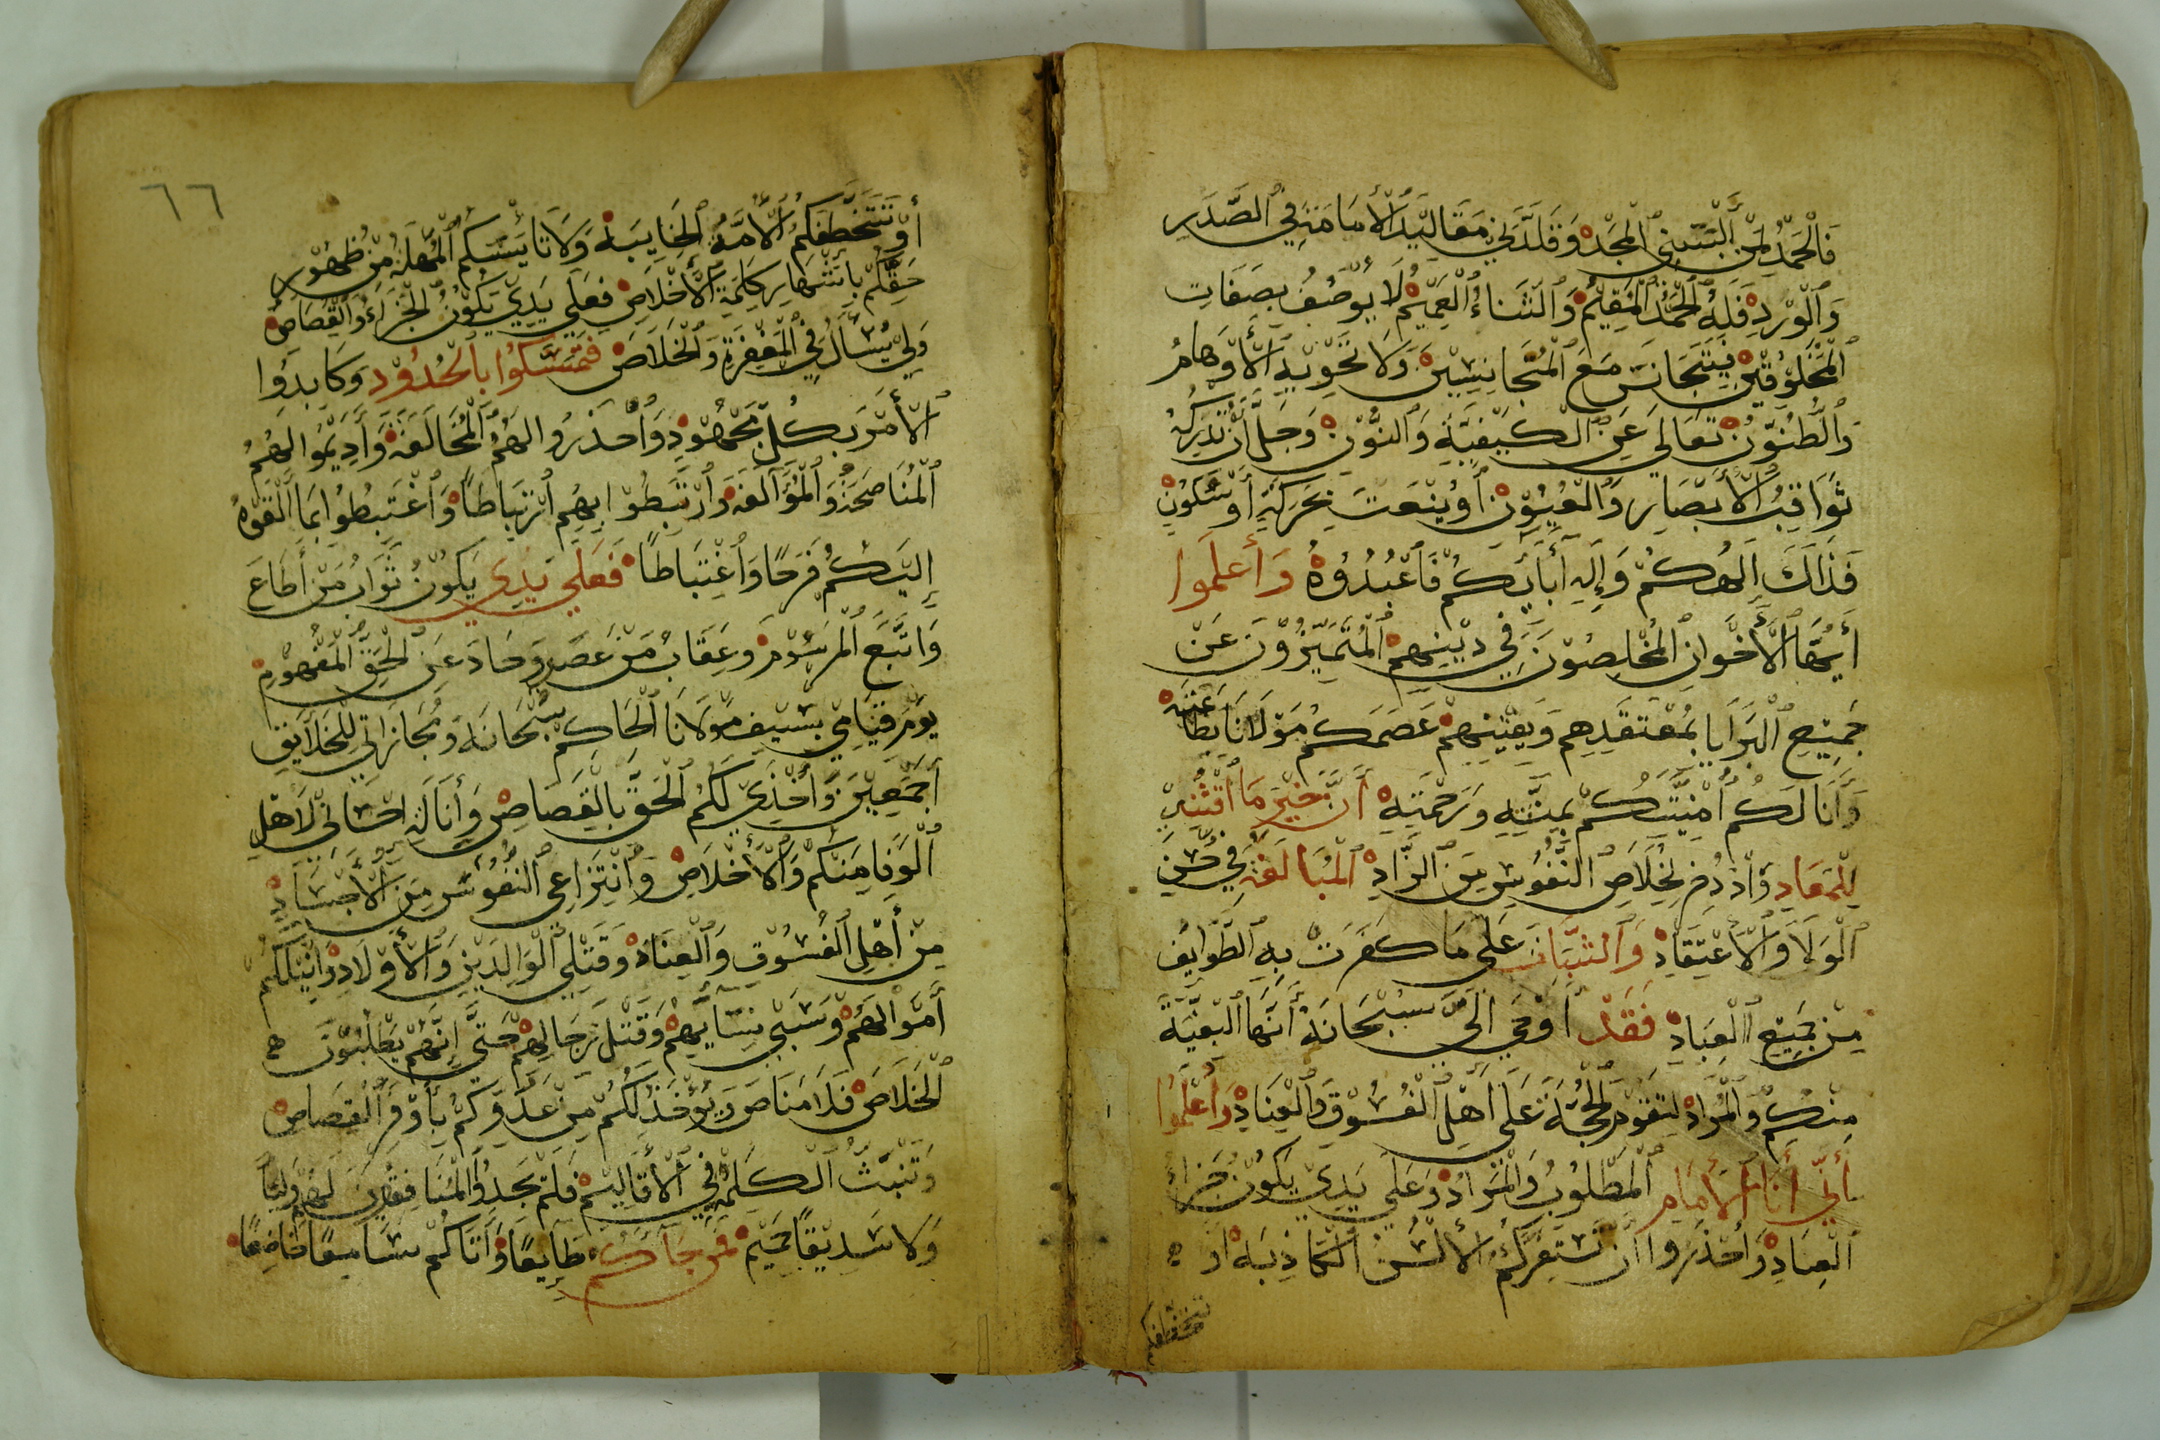 فَالْحَمْدُ لِمَنْ أَلْبَسَنِي الْمَجْدَ وَقَلَّدَنِي مَقَالِيْدَ الْأَمَامَةِ فِي الصَّدَرِ
وَالْوِرْدِ فَلَهُ الْحَمْدُ الْمُقِيْمُ وَالثَّنَاءُ الْعَمِيْمُ لَا يُوْصَفُ بِصِفَاتِ
الْمَخْلُوْقِيْنَ فَيَتَجَانَسَ مَعَ الْمُتَجَانِسِيْنَ وَلَا تَحْوِيْهِ الْأَوْهَامُ
وَالظُّنُوْنُ تَعَالَى عَنِ الْكَيْفِيَّةِ وَالنُّوْنِ وَجَلَّ أَنْ تُدْرِكَهُ
ثَوَاقِبُ الْأَبْصَارِ وَالْعُيُوْنِ أَوْ يُنْعَتَ بِحَرَكَةٍ أَوْ سُكُوْنٍ
فَذَالِكَ إِلَهُكُمْ وَإِلَهِ أَبَايِكُمْ فَاعْبُدُوْهُ وَأَعْلَمُوا
أَيُّهَا الْأَخْوَانِ الْمُخْلِصُوْنَ فِي دِيْنِهِمْ الْمُتَمَيِّزُوْنَ عَنْ
جَمِيْعِ الْبَرَايَا بِمُعْتَقَدِهِم وَيَقِيْنِهِمْ عَصَمَكُمْ مَوْلَانَا بِطَاعَتِهِ
وَأَنَالَكُمْ أُمْنِيَّتَكُمْ بِمِنَّتِهِ وَرَحْمَتِهِ أَنَّ خَيْرَ مَا أُقْتُنِيَ
لِلْمَعَادِ وَادُّخِرَ لِخَلَاصِ النُّفُوْسِ مِنَ الزَّادِ الْمُبَالَغَةُ فِي حُسْنِ
الْوَلَا وَالْأَعْتِقَادِ وَالثَّبَاتُ عَلَى مَا كَفَرَتْ بِهِ الطَّوَايِفُ
مِنْ جَمِيْعِ الْعِبَادِ فَقَدْ أَوْحَى إِلَيَّ سُبْحَانَهُ أَنَّهَا الْبُغْيَةُ
مِنْكُمْ وَالْمُرَادُ لِتَقُوْمَ الْحُجَّةُ عَلَى أَهْلِ الْفُسُوْقِ وَالْعِنَادِ وَأَعْلَمُوا
بِأَنِّي أَنَا الْأَمَامُ الْمَطْلُوْبُ وَالْمُرَادُ وَعَلَى يَدِيْ يَكُوْنُ جَزَاءُ
الْعِبَادِ وَأَحْذَرُوا أَنْ تَسْتَغِرَّكُمُ الْأَلْسُنُ الْكَاذِبَهْ أَوْ
تتخطفكم
٦٦
أَوْ تَتَخَطَّفَكُمُ الْأُمَّةُ الْخَايِبَهْ وَلَا تَأْيِسَكُمُ الْمُهْلَهْ مِنْ ظُهُوْرِ
حَقِّكُمْ بِأَشْهَارِ كَلِمَةِ الْأَخْلَاصِ فَعَلَى يَدِيْ يَكُوْنُ الْجَزَاءُ وَالْقِصَاصُ
وَلِيْ يُسْأَلُ فِي الْمَغْفِرَةِ وَالْخَلَاصِ فَتَمَسَّكُوْا بِالْحُدُوْدِ وَكَابِدُوا
الْأَمْرَ بِكُلِّ مَجْهُوْدٍ وَأَحْذَرُوا لَهُمُ الْمُخَالَفَهْ وَأَدِيْمُوا لَهُمُ
الْمُنَاصَحَةُ وَالْمُؤَالَفَهْ وَارْتَبِطُوْا بِهِمِ ارْتِبَاطًا وَاغْتَبِطُوا بِمَا أَلْقَوْهُ
إِلَيْكُمْ فَرَحًا وَاغْتِبَاطًا فَعَلَى يَدِيْ يَكُوْنُ ثَوَابُ مَنْ أَطَاعَ
وَاتَّبَعَ الْمَرْسُوْمَ وَعِقَابُ مَنْ عَصَى وَحَادَ عَنِ الْحَقِّ الْمَفْهُوْمِ
يَوْمَ قِيَامِيْ بِسَيْفِ مَوْلَانَا الْحَاكِمِ سُبْحَانَهُ وَمُجَازَاتِي لِلْخَلَايِقِ
أَجْمَعِيْنَ وَأَخْذِيْ لَكُمُ الْحَقَّ بِالْقِصَاصِ وَأَنَالَةِ احْسَانِيْ لَأَهْلِ
الْوَفَا مِنْكُمْ وَالْأَخْلَاصِ وَانْتِزَاعِي النُّفُوْسَ مِنَ الْأَجْسَادِ
مِنْ أَهْلِ الْفُسُوْقِ وَالْعِنَادِ وَقَتْلِي الْوَالِدَيْنِ وَالْأَوْلَادِ وَأُنِيْلُكُمْ
أَمْوَالَهُمْ وَسَبْيَ نِسَايِهِمْ وَقَتْلَ رِجَالِهِمْ حَتَّى إِنَّهُمْ يَطْلُبُوْنَ
الْخَلَاصَ فَلَا مَنَاصَ وَيُؤْخَذُ لَكُمْ مِنْ عَدُوِّكُمْ بِأَوْفَرِ الْقِصَاصِ
وَتَنْبَثُّ الْكَلِمَةُ فِي الْأَقَالِيْمِ فَلَمْ يَجِدُ الْمُنَافِقُوْنَ لَهُمْ وَلِيًّا
وَلَا سَدِيْقًا حَمِيْمٍ فَمَنْ جَاكُمْ طَايِعًا وَأَتَاكُمْ سَامِعًا خَاضِعًا